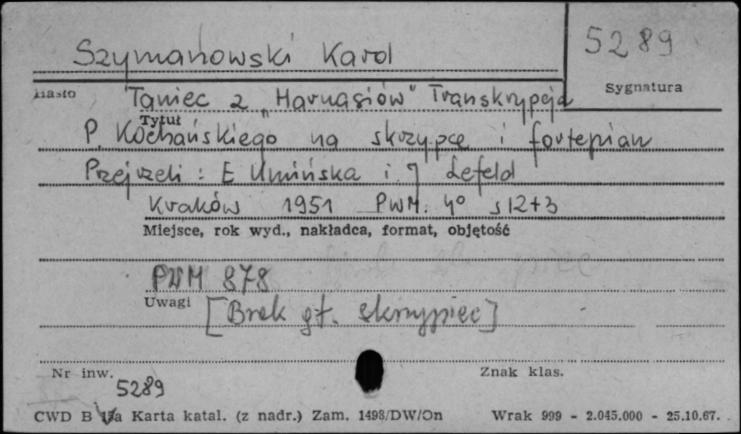 Szymanowski Karol
5289
Hasło
Sygnatura
Taniec z „Harnasiów" Transkrypcja
Tytuł
P. Kochańskiego na skrzypce i fortepian
Przejrzeli: E Umińska i J Lefeld
Kraków 1951 PWM. 4º s 12+3
Miejsce, rok wyd., nakładca, format, objętość
PWM 878
Uwagi
[Brak gł. skrzypiec]
Nr inw.
5289
Znak klas.
CWD B Karta katal. (z nadr.) Zam. 1498/DW/On Wrak 999 - 2.045.000 - 25.10.67.